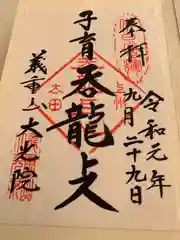 奉拝
令和元年
九月二十九日
子育呑龍上人
太田
義重山大光院